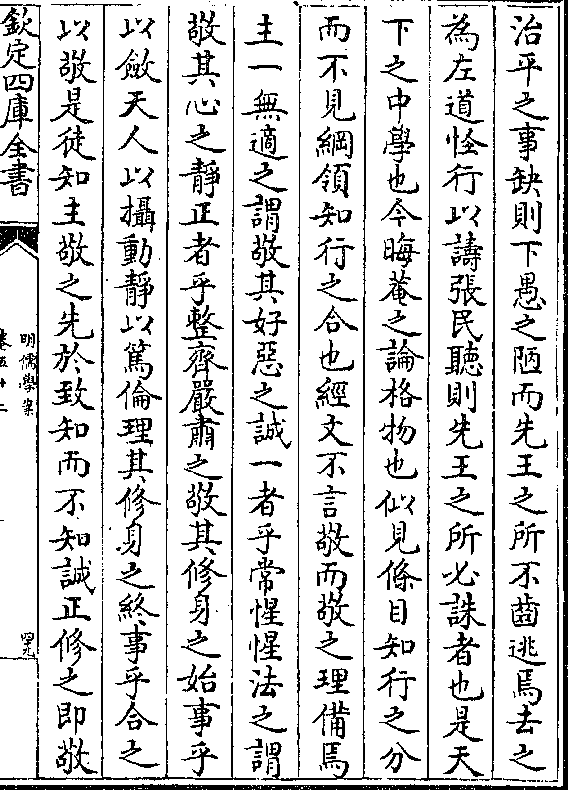 治平之事缺則下愚之陋而先王之所不齒逃焉去之
為左道怪行以譸張民聽則先王之所必誅者也是天
下之中學也今晦菴之論格物也似見條目知行之分
而不見綱領知行之合也經文不言敬而敬之理備焉
主一無適之謂敬其好惡之誠一者乎常惺惺法之謂
敬其心之靜正者乎整齊嚴肅之敬其修身之始事乎
以斂天人以攝動靜以篤倫理其修身之終事乎合之
以敬是徒知主敬之先於致知而不知誠正修之即敬
欽定四庫全書
明儒學案
卷五十二
四九